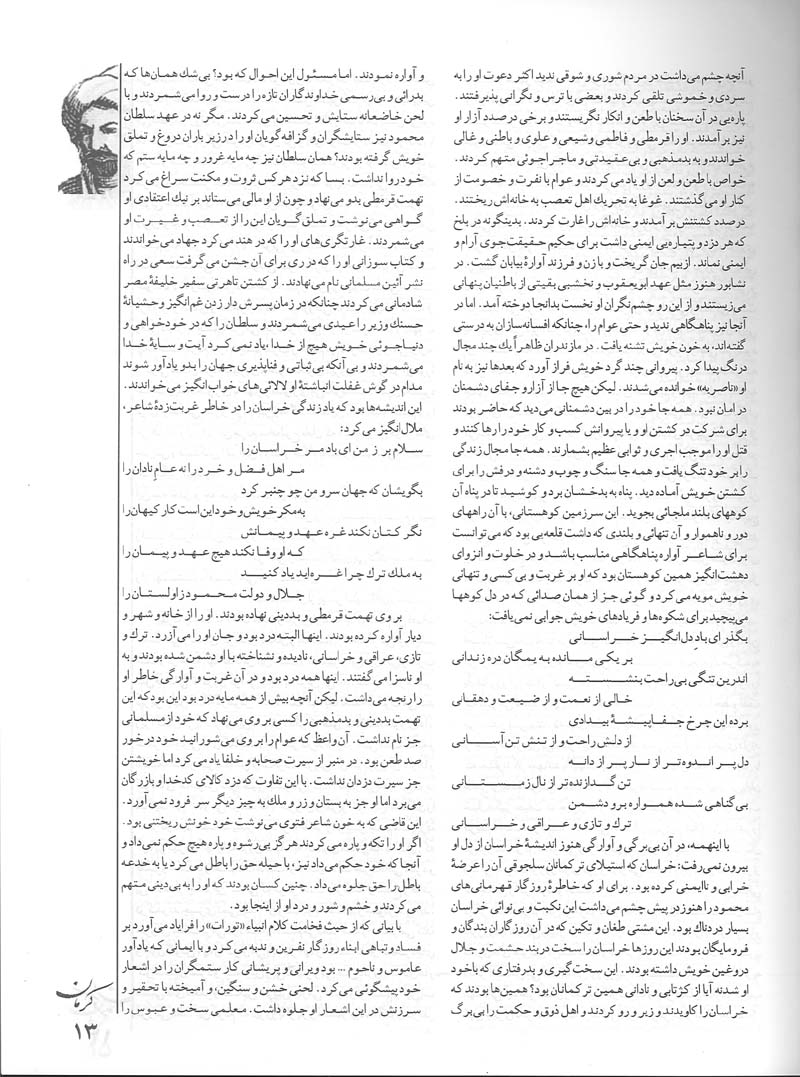 آنچه چشم می‌داشت در مردم شوری و شوقی ندید اکثر دعوت او را به
سردی و خموشی تلقی کردند و بعضی با ترس و نگرانی پذیرفتند.
پاره‌یی در آن سخنان با طعن و انکار نگریستند و برخی در صدد آزار او
نیز برآمدند. او را قرمطی و فاطمی و شیعی و علوی و باطنی و غالی
خواندند و به بدمذهبی و بی‌عقیدتی و ماجراجوئی متهم کردند.
خواص با طعن و لعن از او یاد می‌کردند و عوام با نفرت و خصومت از
کنار او می‌گذشتند. غوغا به تحریك اهل تعصب به خانه‌اش ریختند.
درصدد کشتنش برآمدند و خانه‌اش را غارت کردند. بدینگونه در بلخ
که هر دزد و پتیاره‌یی ایمنی داشت برای حکیم حقیقت‌جوی آرام و
ایمنی نماند. از بیم جان گریخت و با زن و فرزند آوارهٔ بیابان گشت. در
نشابور هنوز مثل عهد ابویعقوب و نخشبی بقیتی از باطنیان پنهانی
می‌زیستند و از این رو چشم‌نگران او نخست بدانجا دوخته آمد. اما در
آنجا نیز پناهگاهی ندید و حتی عوام را، چنانکه افسانه‌سازان به درستی
گفته‌اند، به خون خویش تشنه یافت. در مازندران ظاهراً یك چند مجال
درنگ پیدا کرد. پیروانی چند گرد خویش فراز آورد که بعدها نیز به نام
او «ناصریه» خوانده می‌شدند. لیکن هیچ جا از آزار و جفای دشمنان
در امان نبود. همه جا خود را در بین دشمنانی می‌دید که حاضر بودند
برای شرکت در کشتن او و یا پیروانش کسب و کار خود را رها کنند و
قتل او را موجب اجری و ثوابی عظیم بشمارند. همه جا مجال زندگی
را بر خود تنگ یافت و همه جا سنگ و چوب و دشنه و درفش را برای
کشتن خویش آماده دید. پناه به بدخشان برد و کوشید تا در پناه آن
کوههای بلند ملجائی بجوید. این سرزمین کوهستانی، با آن راههای
دور و ناهموار و آن تنهائی و بلندی که داشت قلعه‌یی بود که می‌توانست
برای شاعر آواره پناهگاهی مناسب باشد و در خلوت و انزوای
دهشت‌انگیز همین کوهستان بود که او بر غربت و بی‌کسی و تنهائی
خویش مویه می‌کرد و گوئی جز از همان صدائی که در دل کوهها
می‌پیچید برای شکوه‌ها و فریادهای خویش جوابی نمی‌یافت:
بگذر ای بادِ دل‌انگیز خراسانی
بر یکی مانده به یمگان دره زندانی
اندرین تنگی بی‌راحت بنشسته
خالی از نعمت و از ضیعت و دهقانی
برده این چرخ جفاپیشهٔ بیدادی
از دلش راحت و از تنش تن آسانی
دل پر اندوه‌تر از نار پر از دانه
تن گدازنده‌تر از نال زمستانی
بی‌گناهی شده همواره برو دشمن
ترك و تازی و عراقی و خراسانی
با اینهمه، در آن بی‌برگی و آوارگی هنوز اندیشهٔ خراسان از دل او
بیرون نمی‌رفت: خراسان که استیلای ترکمانان سلجوقی آن را عرضهٔ
خرابی و ناایمنی کرده بود. برای او که خاطرهٔ روزگار قهرمانی‌های
محمود را هنوز در پیش چشم می‌داشت این نکبت و بی‌نوائی خراسان
بسیار دردناك بود. این مشتی طغان و تکین که در آن روزگاران بندگان و
فرومایگان بودند این روزها خراسان را سخت در بند حشمت و جلال
دروغین خویش داشته بودند. این سخت‌گیری و بدرفتاری که با خود
او شد نه آیا از کژتابی و نادانی همین ترکمانان بود؟ همین‌ها بودند که
خراسان را کاویدند و زیر و رو کردند و اهل ذوق و حکمت را بی‌برگ
و آواره نمودند. اما مسئول این احوال که بود؟ بی‌شك همان‌ها که
بدرائی و بی‌رسمی خداوندگاران تازه را درست و روا می‌شمردند و با
لحن خاضعانه ستایش و تحسین می‌کردند. مگر نه در عهد سلطان
محمود نیز ستایشگران و گزافه‌گویان او را در زیر باران دروغ و تملق
خویش گرفته بودند؟ همان سلطان نیز چه مایه غرور و چه مایه ستم که
خود روا نداشت. بسا که نزد هر کس ثروت و مکنت سراغ می‌کرد
تهمت قرمطی بدو می‌نهاد و چون از او مالی می‌ستاند بر نیك اعتقادی او
گواهی می‌نوشت و تملق‌گویان این را از تعصب و غیرت او
می‌شمردند. غارتگری‌های او را که در هند می‌کرد جهاد می‌خواندند
و کتاب سوزانی او را که در ری برای آن جشن می‌گرفت سعی در راه
نشر آئین مسلمانی نام می‌نهادند. از کشتن تاهرتی سفیر خلیفهٔ مصر
شادمانی می‌کردند چنانکه در زمان پسرش دار زدن غم‌انگیز و حشیانهٔ
حسنك وزیر را عیدی می‌شمردند و سلطان را که در خودخواهی و
دنیاجوئی خویش هیچ از خدا، یاد نمی‌کرد آیت و سایهٔ خدا
می‌شمردند و بی آنکه بی‌ثباتی و فناپذیری جهان را بدو یادآور شوند
مدام در گوش غفلت انباشتهٔ او لالائی‌های خواب‌انگیز می‌خواندند.
این اندیشه‌ها بود که یاد زندگی خراسان را در خاطر غربت‌زدهٔ شاعر،
ملال‌انگیز می‌کرد:
سلام بر ز من ای باد مر خراسان را
مر اهل فضل و خرد را نه عامِ نادان را
بگویشان که جهان سرو من چو چنبر کرد
به مکر خویش و خود این است کار کیهان را
نگر کتان نکند غره عهد و پیمانش
که او وفا نکند هیچ عهد و پیمان را
به ملك ترك چرا غره اید یاد کنید
جلال و دولت محمود زاولستان را
بر وی تهمت قرمطی و بددینی نهاده بودند. او را از خانه و شهر و
دیار آواره کرده بودند. اینها البته درد بود و جان او را می‌آزرد. ترك و
تازی، عراقی و خراسانی، نادیده و نشناخته با او دشمن شده بودند و به
او ناسزا می‌گفتند. اینها همه درد بود و در آن غربت و آوارگی خاطر او
را رنجه می‌داشت. لیکن آنچه بیش از همه مایه درد بود این بود که این
تهمت بددینی و بدمذهبی را کسی بر وی می‌نهاد که خود از مسلمانی
جز نام نداشت. آن واعظ که عوام را بر وی می‌شورانید خود در خور
صد طعن بود. در منبر از سیرت صحابه و خلفا یاد می‌کرد اما خویشتن
جز سیرت دزدان نداشت. با این تفاوت که دزد کالای کدخدا و بازرگان
می‌برد اما او جز به بستان و زر و ملك به چیز دیگر سر فرود نمی‌آورد.
این قاضی که به خون شاعر فتوی می‌نوشت خود خونش ریختنی بود.
اگر او را تکه و پاره می‌کردند هرگز بی‌رشوه و پاره هیچ حکم نمی‌داد و
آنجا که خود حکم می‌داد نیز، با حیله حق را باطل می‌کرد یا به خدعه
باطل را حق جلوه می‌داد. چنین کسان بودند که او را به بی‌دینی متهم
می‌کردند و خشم و شور و درد او از اینجا بود.
با بیانی که از حیث فخامت کلام انبیاء «تورات» را فرایاد می‌آورد بر
فساد و تباهی ابناء روزگار نفرین و ندبه می‌کرد و با ایمانی که یادآور
عاموس و ناحوم ... بود ویرانی و پریشانی کار ستمگران را در اشعار
خود پیشگوئی می‌کرد. لحنی خشن و سنگین، و آمیخته با تحقیر و
سرزنش در این اشعار او جلوه داشت. معلمی سخت و عبوس را
کرمان
۱۳